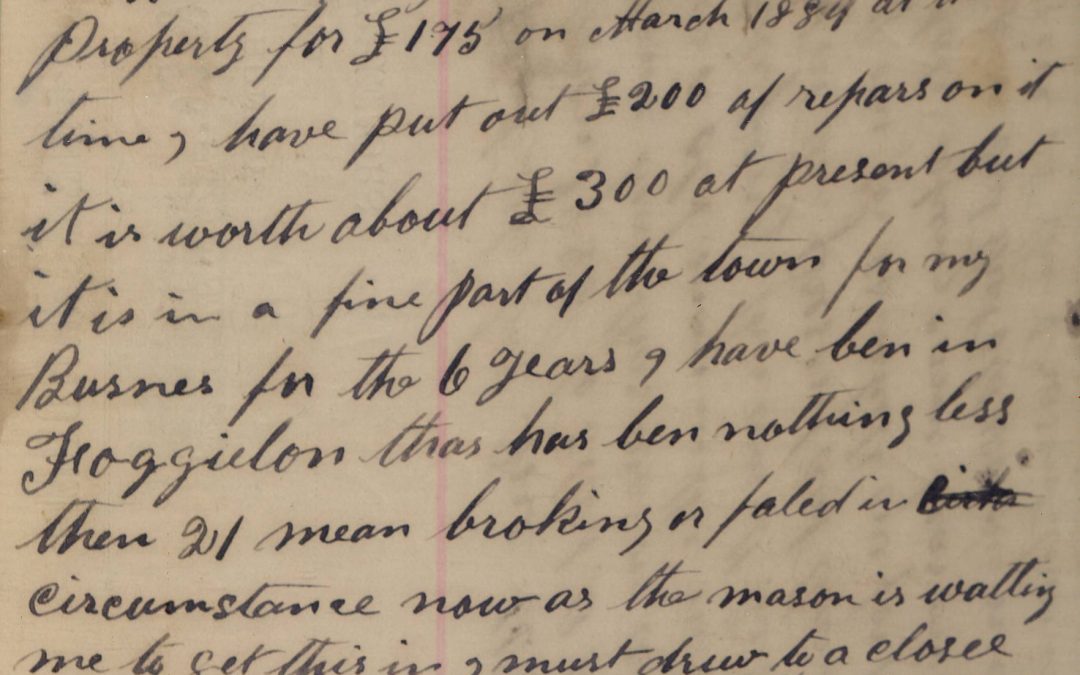 Property for £175 on March 1889 at
time, have put out £200 of repars on it
it is worth about £300 at present but
it is in a fine part of the town for my
Busnes for the 6 years 9 have ben in
Foggielon thas has ben nothing less
then 21 mean broking or faled in
circumstance now as the mason is watting
me to get this in 9 must druw to a closee